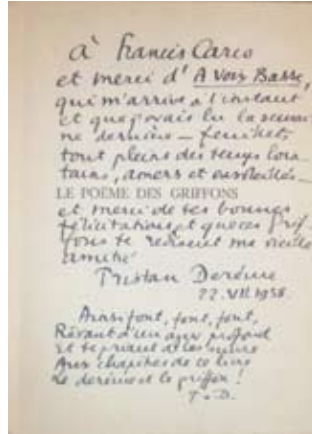 à Francis Carco
et merci d'A Voix Basse,
qui m'arrive à l'instant
et que j'avais lu la semai
ne dernière — feuillets
tout pleins des temps loin
tains, amers et ensoleillés —
LE POÈME DES GRIFFONS
et merci de tes bonnes
félicitations, et que ces grif-
fons te redisent ma vieille
amitié
Tristan Derème
22.VII.1938.
Ainsi font, font, font,
Rêvant d'un azur profond
Et te priant de les suivre
Aux chapitres de ce livre
Le derème et le griffon !
T.D.